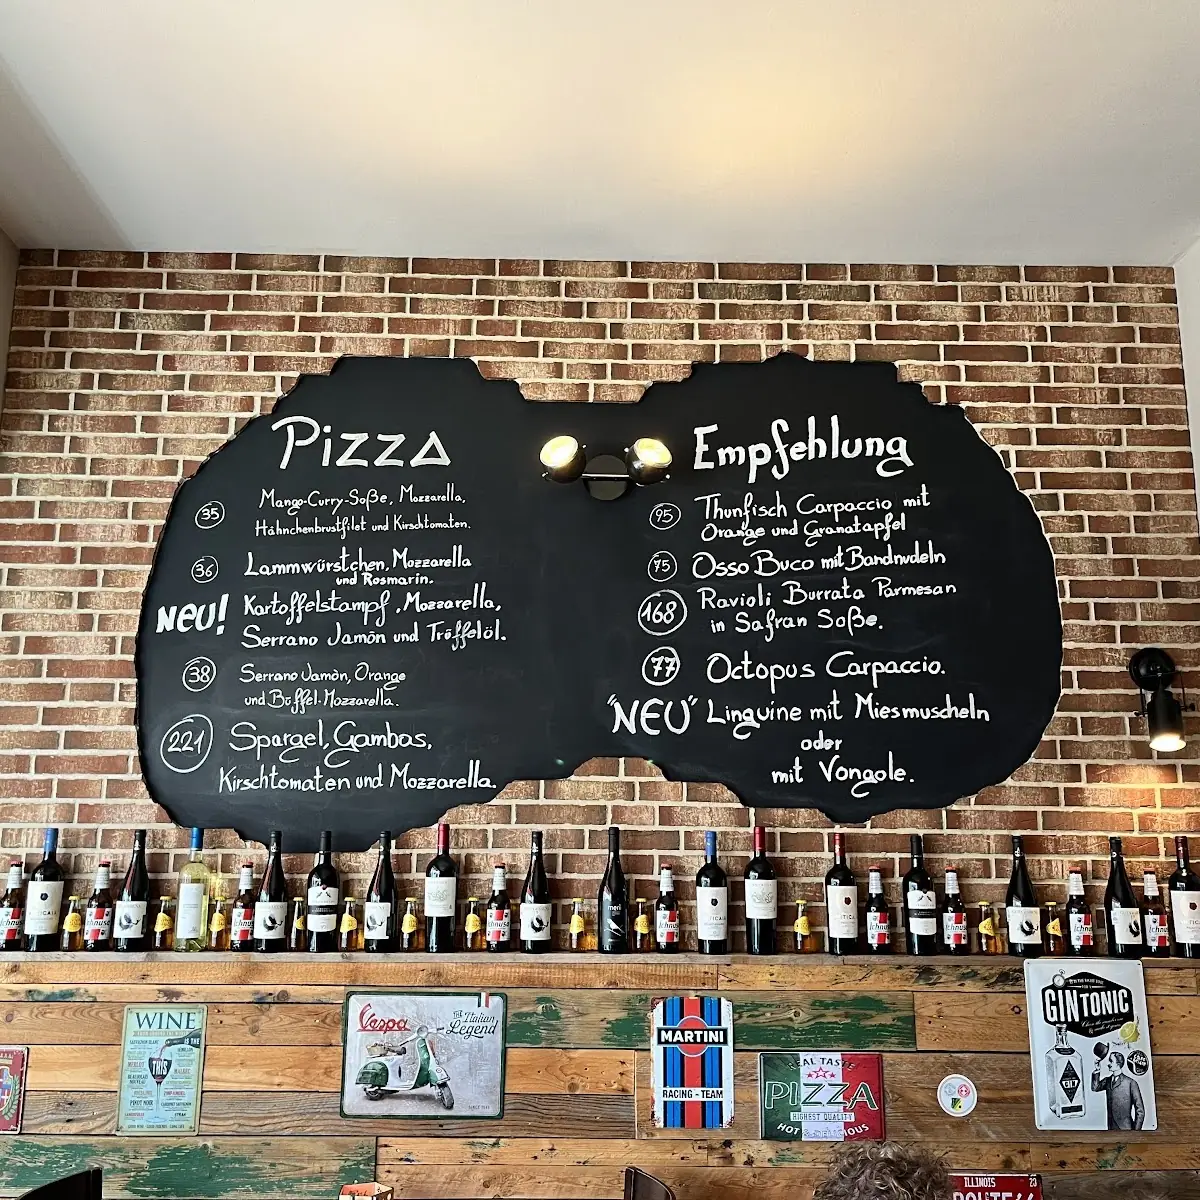 Pizza
35 Mango-Curry-Soße, Mozzarella,
Hähnchenbrustfilet und Kirschtomaten.
36 Lammwürstchen, Mozzarella
und Rosmarin.
NEU! Kartoffelstampf, Mozzarella,
Serrano Jamòn und Tröffelöl.
38 Serrano Jamòn, Orange
und Büffel-Mozzarella.
221 Spargel, Gambas,
Kirschtomaten und Mozzarella.
Empfehlung
95 Thunfisch Carpaccio mit
Orange und Granatapfel
75 Osso Buco mit Bandnudeln
168 Ravioli Burrata Parmesan
in Safran Soße.
77 Octopus Carpaccio.
"NEU" Linguine mit Miesmuscheln
oder
mit Vongole.
Ichnusa
WINE
IS THE
THIS
MERLOT
PINOT NOIR
SYRAH
Vespa
THE Italian
Legend
MARTINI
RACING-TEAM
REAL TASTE
PIZZA
HIGHEST QUALITY
HOT & DELICIOUS
GIN TONIC
GIN
ILLINOIS 23
ROUTE 66